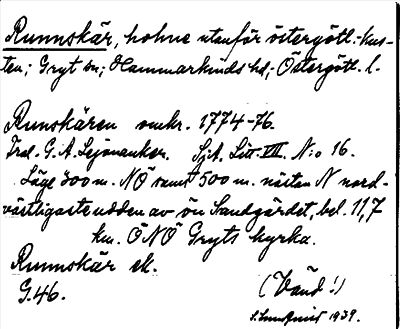 Runnskär, holme utanför östergötl.-kus-
ten; Gryt sn; Hammarkinds hd; Östergötl. l.
Runskären omkr. 1774-76.
Trol. G. A. Lejonanker. Sjk. Litt. VII. N:o 16.
Läge 300 m. NÖ samt 500 m. nästan N nord-
västligaste udden av ön Sandgärdet, bel. 11,7
km. ÖNÖ Gryts kyrka.
Runnskär ek.
G.46.
(Vänd!)
1939.